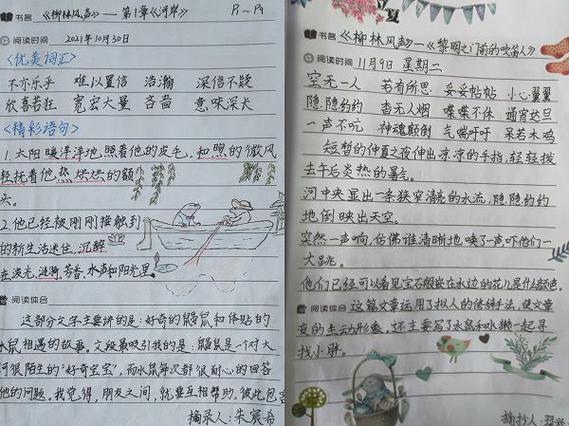 书名 《柳林风声》— 第1章《河岸》 P1~P9
阅读时间 2021年10月30日
<优美词汇>
不亦乐乎 难以置信 浩瀚 深信不疑
欣喜若狂 宽宏大量 吝啬 意味深长
<精彩语句>
1.太阳暖洋洋地照着他的皮毛,和煦的微风
轻抚着他热烘烘的额
头。
2.他已经被刚刚接触到
的新生活迷住,沉醉
在波光、涟漪、芳香、水声和阳光里。
阅读体会
这部分文字主要讲的是:好奇的鼹鼠和体贴的
水鼠相遇的故事。文段最吸引我的是:鼹鼠是一个对大
河很陌生的“好奇宝宝”,而水鼠每次都很耐心的回答
他的问题。我觉得,朋友之间,就要互相帮助,彼此包容
摘录人:朱宸希
立夏
书名 《柳林风声》—《黎明之门前的吹笛人》
阅读时间 11月9日 星期二
空无一人 若有所思 妥妥帖帖 小心翼翼
隐隐约约 杳无人烟 喋喋不休 通宵达旦
一声不吭 神魂颠倒 气喘吁吁 呆若木鸡
短暂的仲夏之夜伸出凉凉的手指,轻轻拨
去午后炎热的暑礼。
河中央显出一条狭窄清亮的水流,隐隐约约
地倒映出天空。
突然一声响,仿佛谁清晰地唤了声吓他们一
大跳。
他们已经可以看见宝石般嵌在水边的花儿是什么颜色。
阅读体会 这篇文章运用了拟人的修辞手法,使文章
变的生动形象,还主要写了水鼠和水獭一起寻
找小胖。
摘抄人: